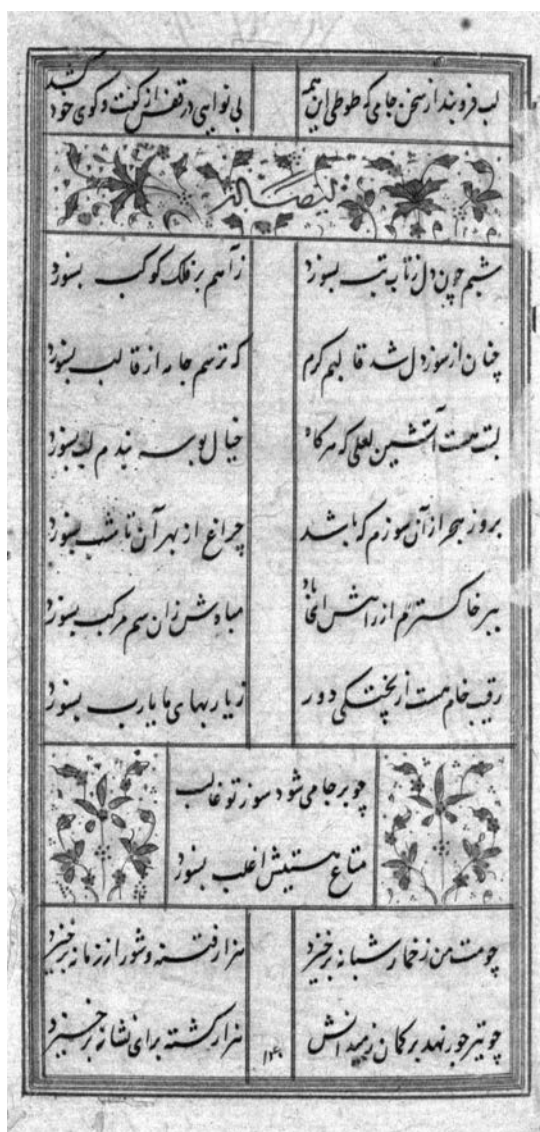 لب فرو بند از سخن جامی که طوطی این همه بی نوایی در قفس از گفت و گوی خود کشد
ایضاً له
شبم چون دل ز تاب تب بسوزد ز آهم بر فلک کوکب بسوزد
چنان از سوز دل شد قالبم گرم که ترسم جامه از قالب بسوزد
لبت هست آتشین لعلی که هر گاه خیال بوسه بندم لب بسوزد
بروز هجر از آن سوزم که باشد چراغ از بهر آن تا شب بسوزد
ببر خاکسترم از راهش ای باد مبادش زان سم مرکب بسوزد
رقیب خام هست از پختگی دور ز یاربهای ما یارب بسوزد
چو بر جامی شود سوز تو غالب
متاع هستیش اغلب بسوزد
چو مست من ز خمار شبانه برخیزد هزار فتنه و شور از زمانه برخیزد
چو تیر جور نهد بر کمان ز میدانش هزار کشته برای نشانه برخیزد